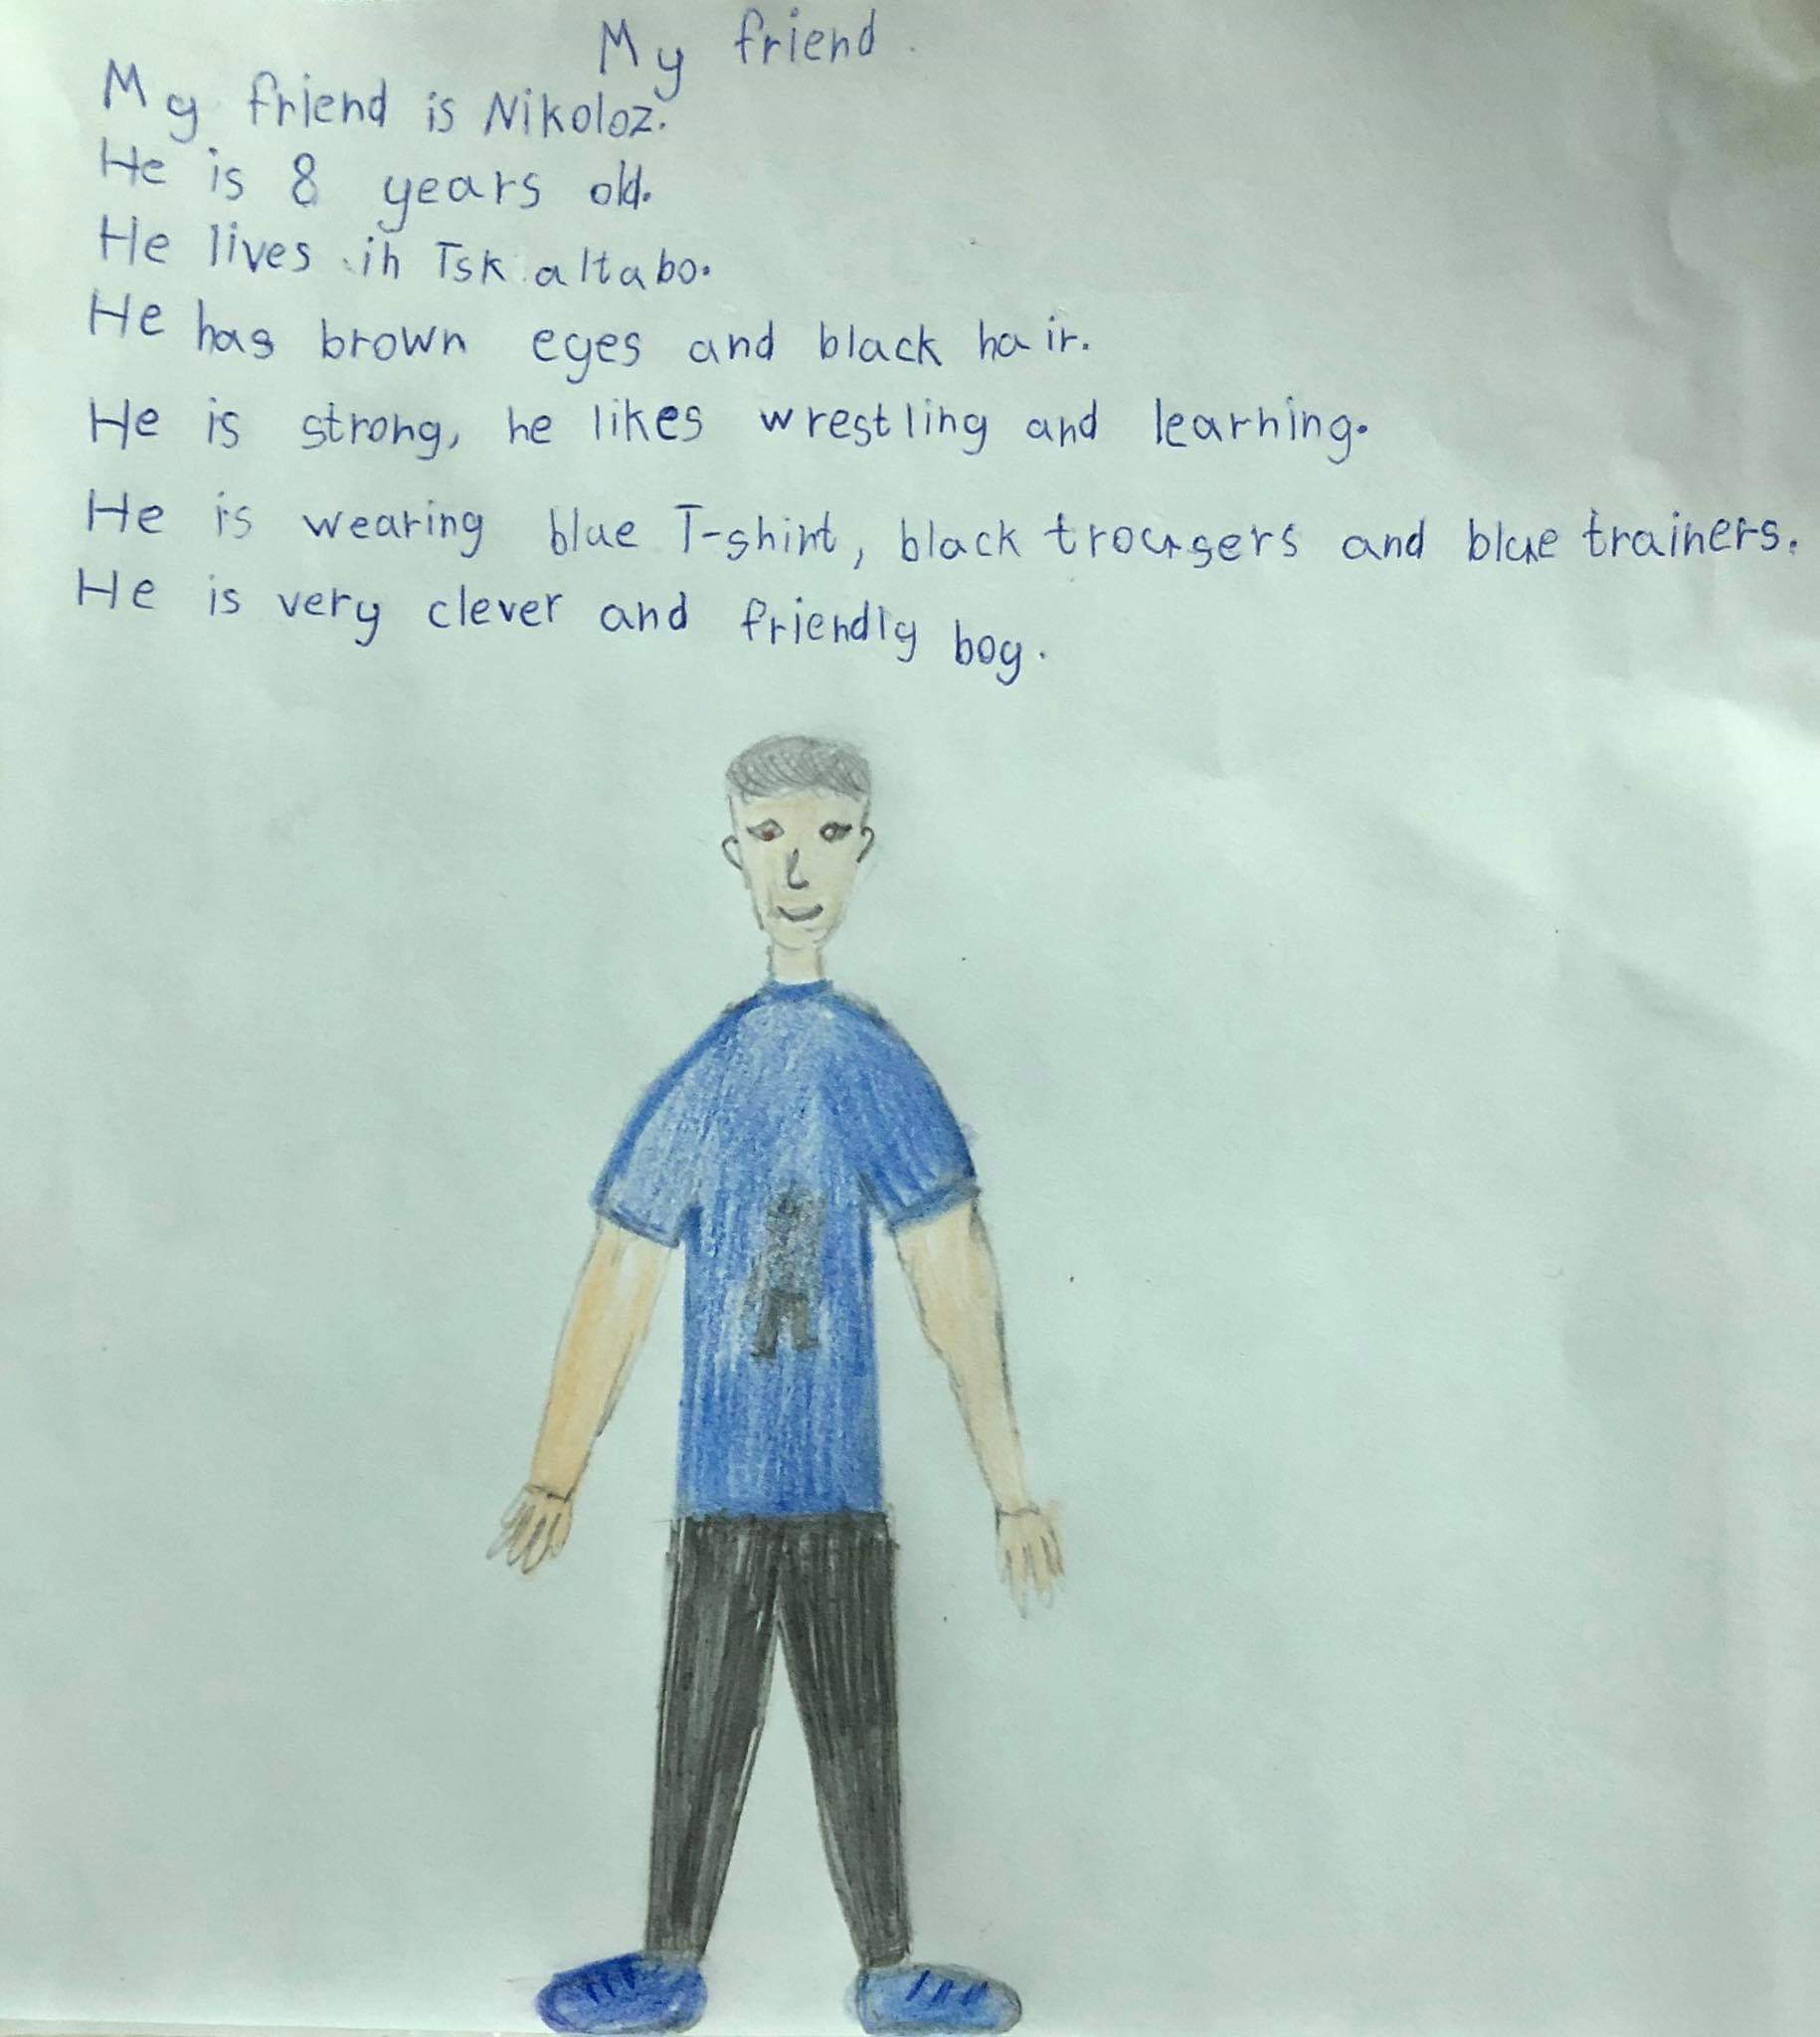 My friend.
My friend is Nikoloz.
He is 8 years old.
He lives in Tskaltabo.
He has brown eyes and black hair.
He is strong, he likes wrestling and learning.
He is wearing blue T-shirt, black trousers and blue trainers.
He is very clever and friendly boy.